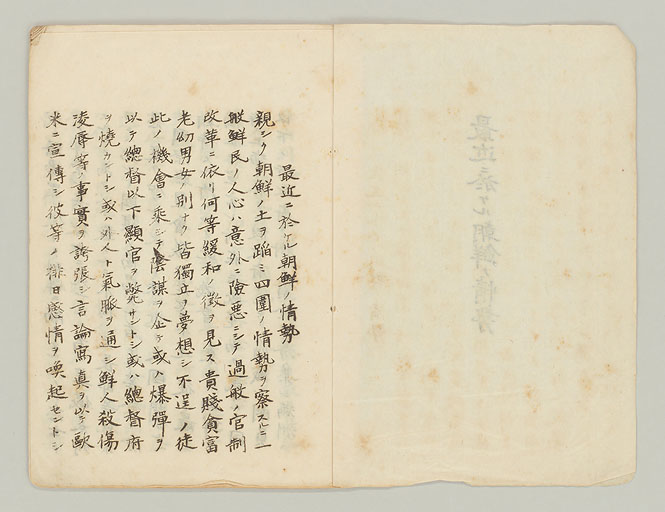 最近ニ於ケル朝鮮ノ情勢
親シク朝鮮ノ土ヲ蹈ミ四圍ノ情勢ヲ察スルニ一
般鮮民ノ人心ハ意外ニ險惡ニシテ過般ノ官制
改革ニ依リ何等緩和ノ徴ヲ見ス貴賤貧富
老幼男女ノ別ナク皆獨立ヲ夢想シ不逞ノ徒
此ノ機會ニ乘シテ陰謀ヲ企テ或ハ爆彈ヲ
以テ總督以下顯官ヲ斃サントシ或ハ總督府
ヲ燒カントシ或ハ外人ト氣脈ヲ通シ鮮人殺傷
凌辱等ノ事實ヲ誇張シ言論寫眞ヲ以テ歐
米ニ宣傳シ彼等ノ排日感情ヲ喚起セントシ